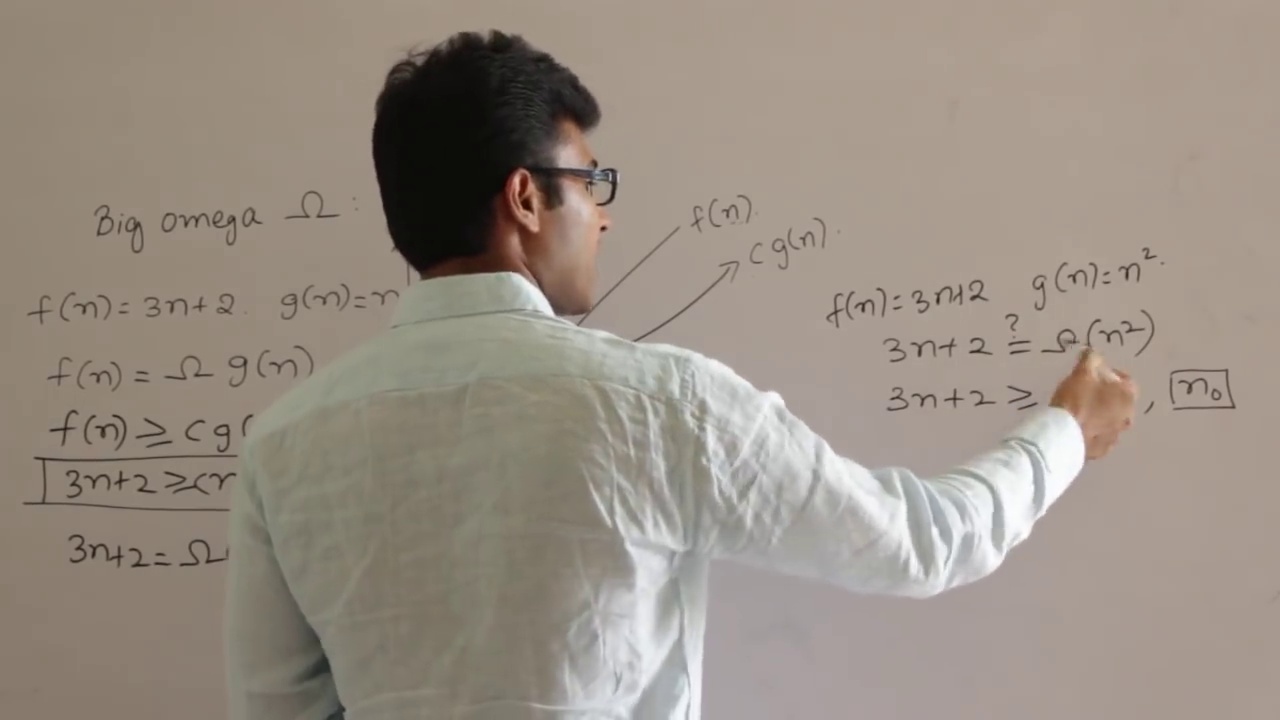 Big omega Ω :
f(n) = 3n+2. g(n)=n
f(n) = Ω g(n)
f(n) ≥ c g(
3n+2 ≥ cn
3n+2 = Ω
f(n).
c g(n).
f(n) = 3n+2 g(n)=n².
?
3n+2 = Ω(n²)
3n+2 ≥ , n₀